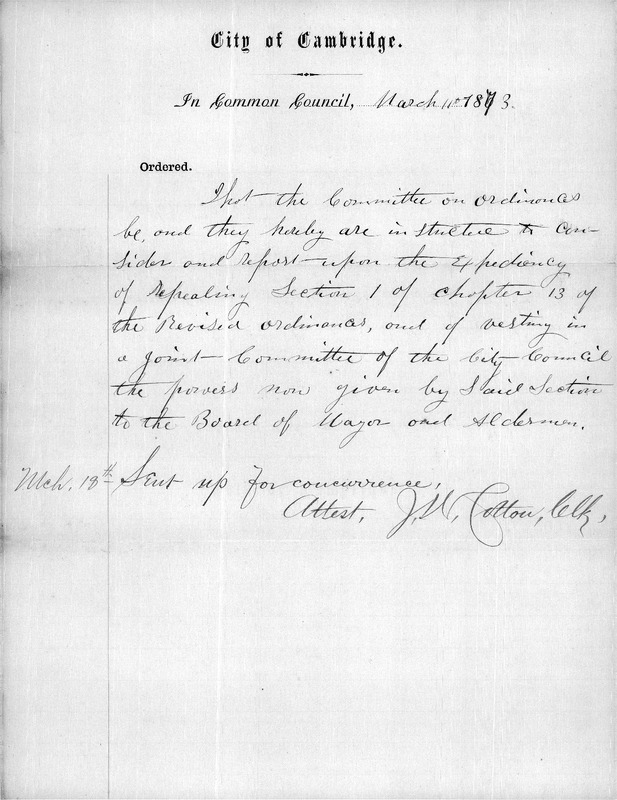 City of Cambridge.
In Common Council, March 11th 1873.
Ordered.
That the Committee on ordinances
be, and they hereby are instructed to con-
sider and report upon the Expediency
of repealing Section 1 of chapter 13 of
the Revised ordinances, and of vesting in
a joint Committee of the City Council
the powers now given by Said Section
to the Board of Mayor and Aldermen.
Mch. 18th Sent up for concurrence,
Attest, J. W. Cotton, Clk,